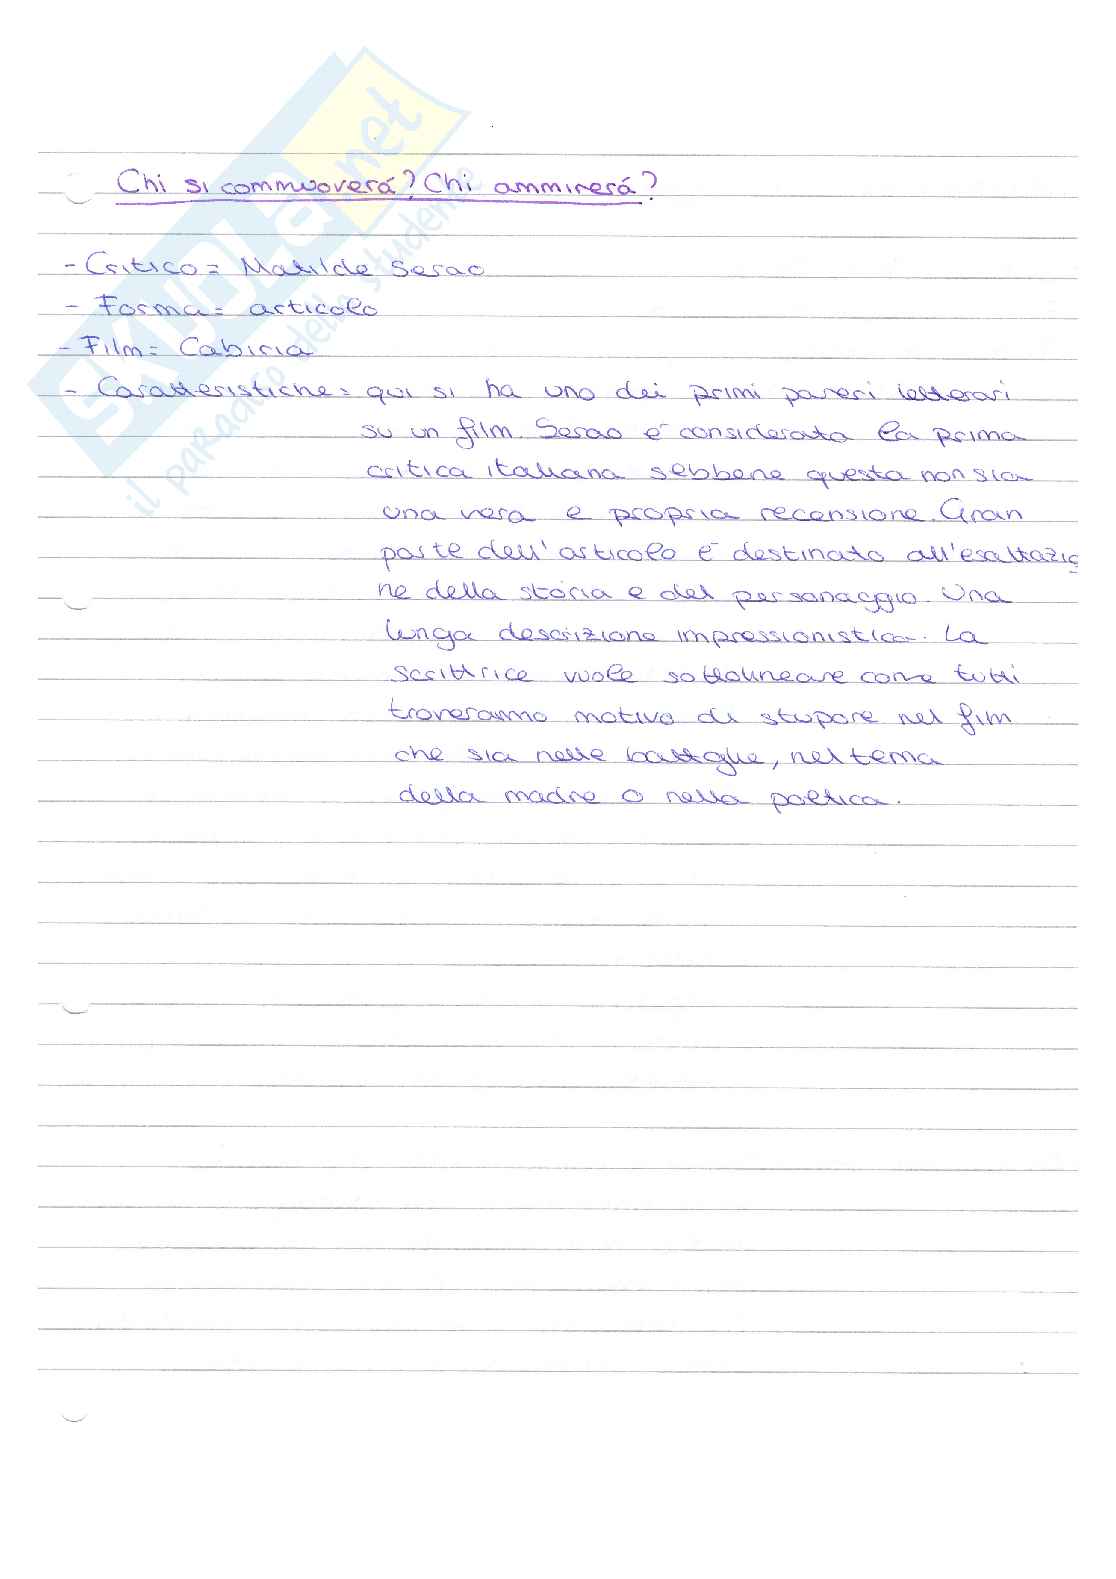 Chi si commuoverá? Chi ammirerá?
- Critico = Matilde Serao
- Forma = articolo
- Film = Cabiria
- Caratteristiche = qui si ha uno dei primi pareri letterari
su un film. Serao é considerata la prima
critica italiana sebbene questa non sia
una vera e propria recensione. Gran
parte dell'articolo é destinato all'esaltazio
ne della storia e del personaggio. Una
lunga descrizione impressionistica. La
scrittrice vuole sottolineare come tutti
troveranno motivo di stupore nel film
che sia nelle battaglie, nel tema
della madre o nella poetica.
SKUOLA.net
il paradiso dello studente